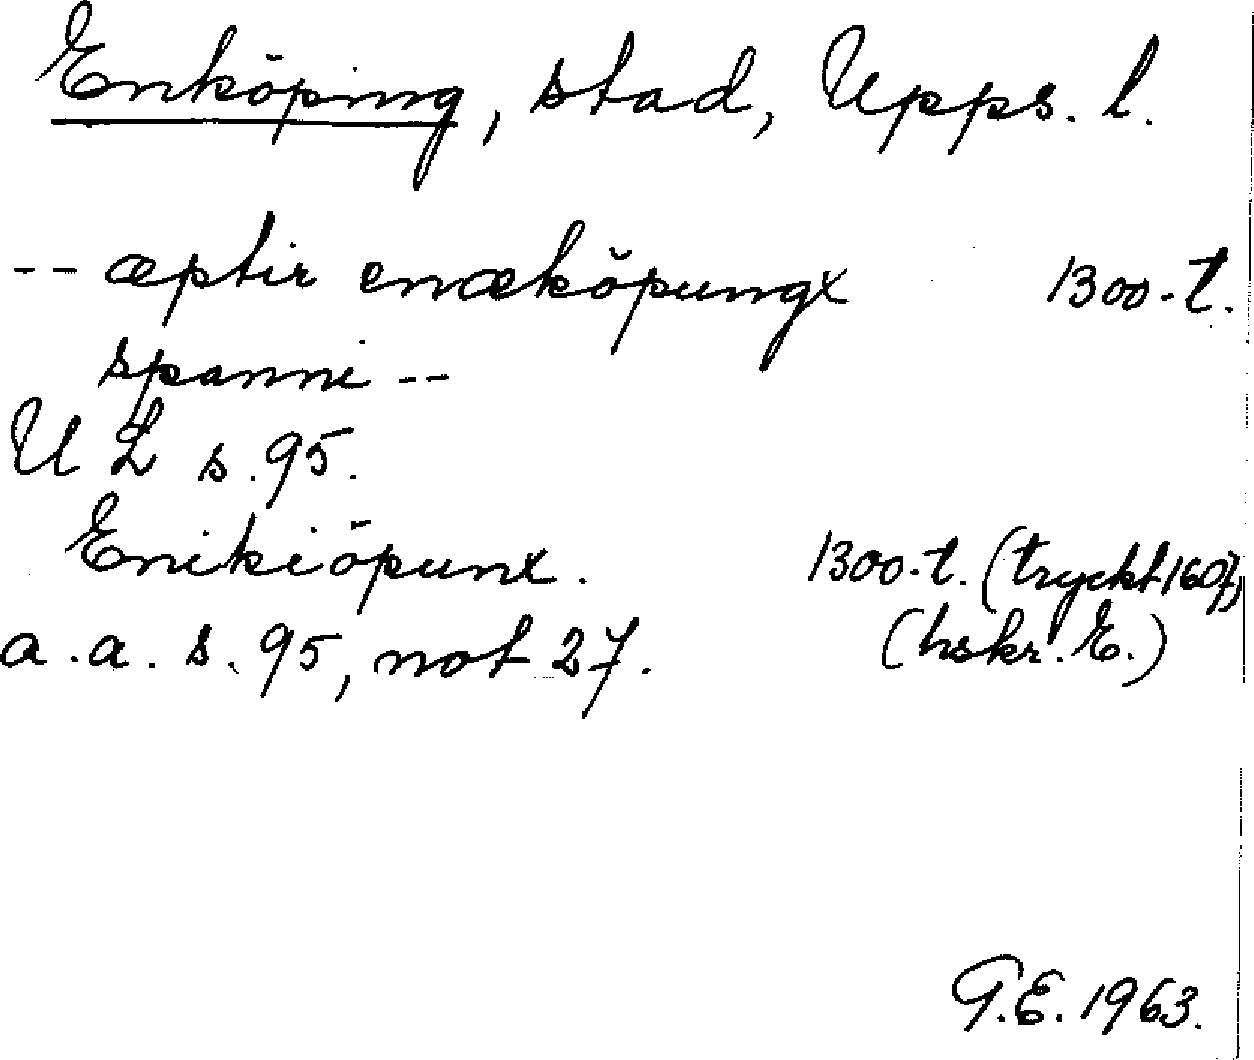 Enköping, stad, Upps. l.
-- æptir enæköpungx 1300-t.
spanni --
UL s. 95.
Enikiöpunx. 1300-t. (tryckt 1607)
a.a. s. 95, not 27. (hskr. E.)
G.E. 1963.